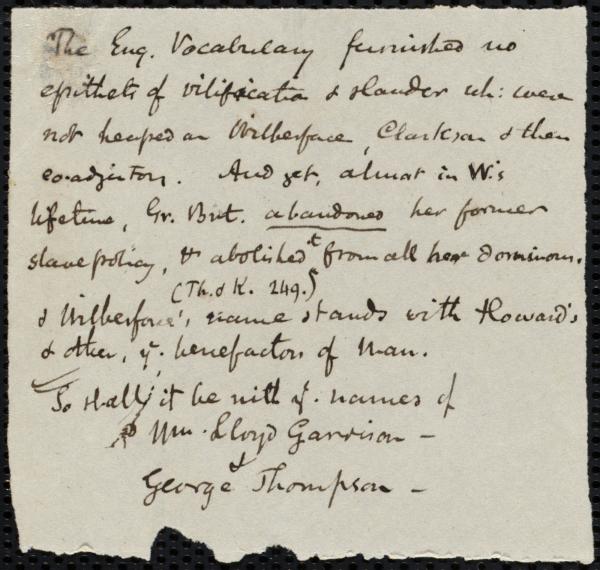 The Eng. Vocabulary furnished no
epithets of vilification & slander wh: were
not heaped on Wilberforce, Clarkson & their
co-adjutors. And yet, almost in W's
lifetime, Gr. Brit. abandoned her former
slave policy, & abolished it from all her dominions.
(Th. & K. 249.)
& Wilberforce's name stands with Howard's
& other, ye. benefactors of Man.
So shall it be with ye. names of
Wm. Lloyd Garrison —
&
George Thompson —